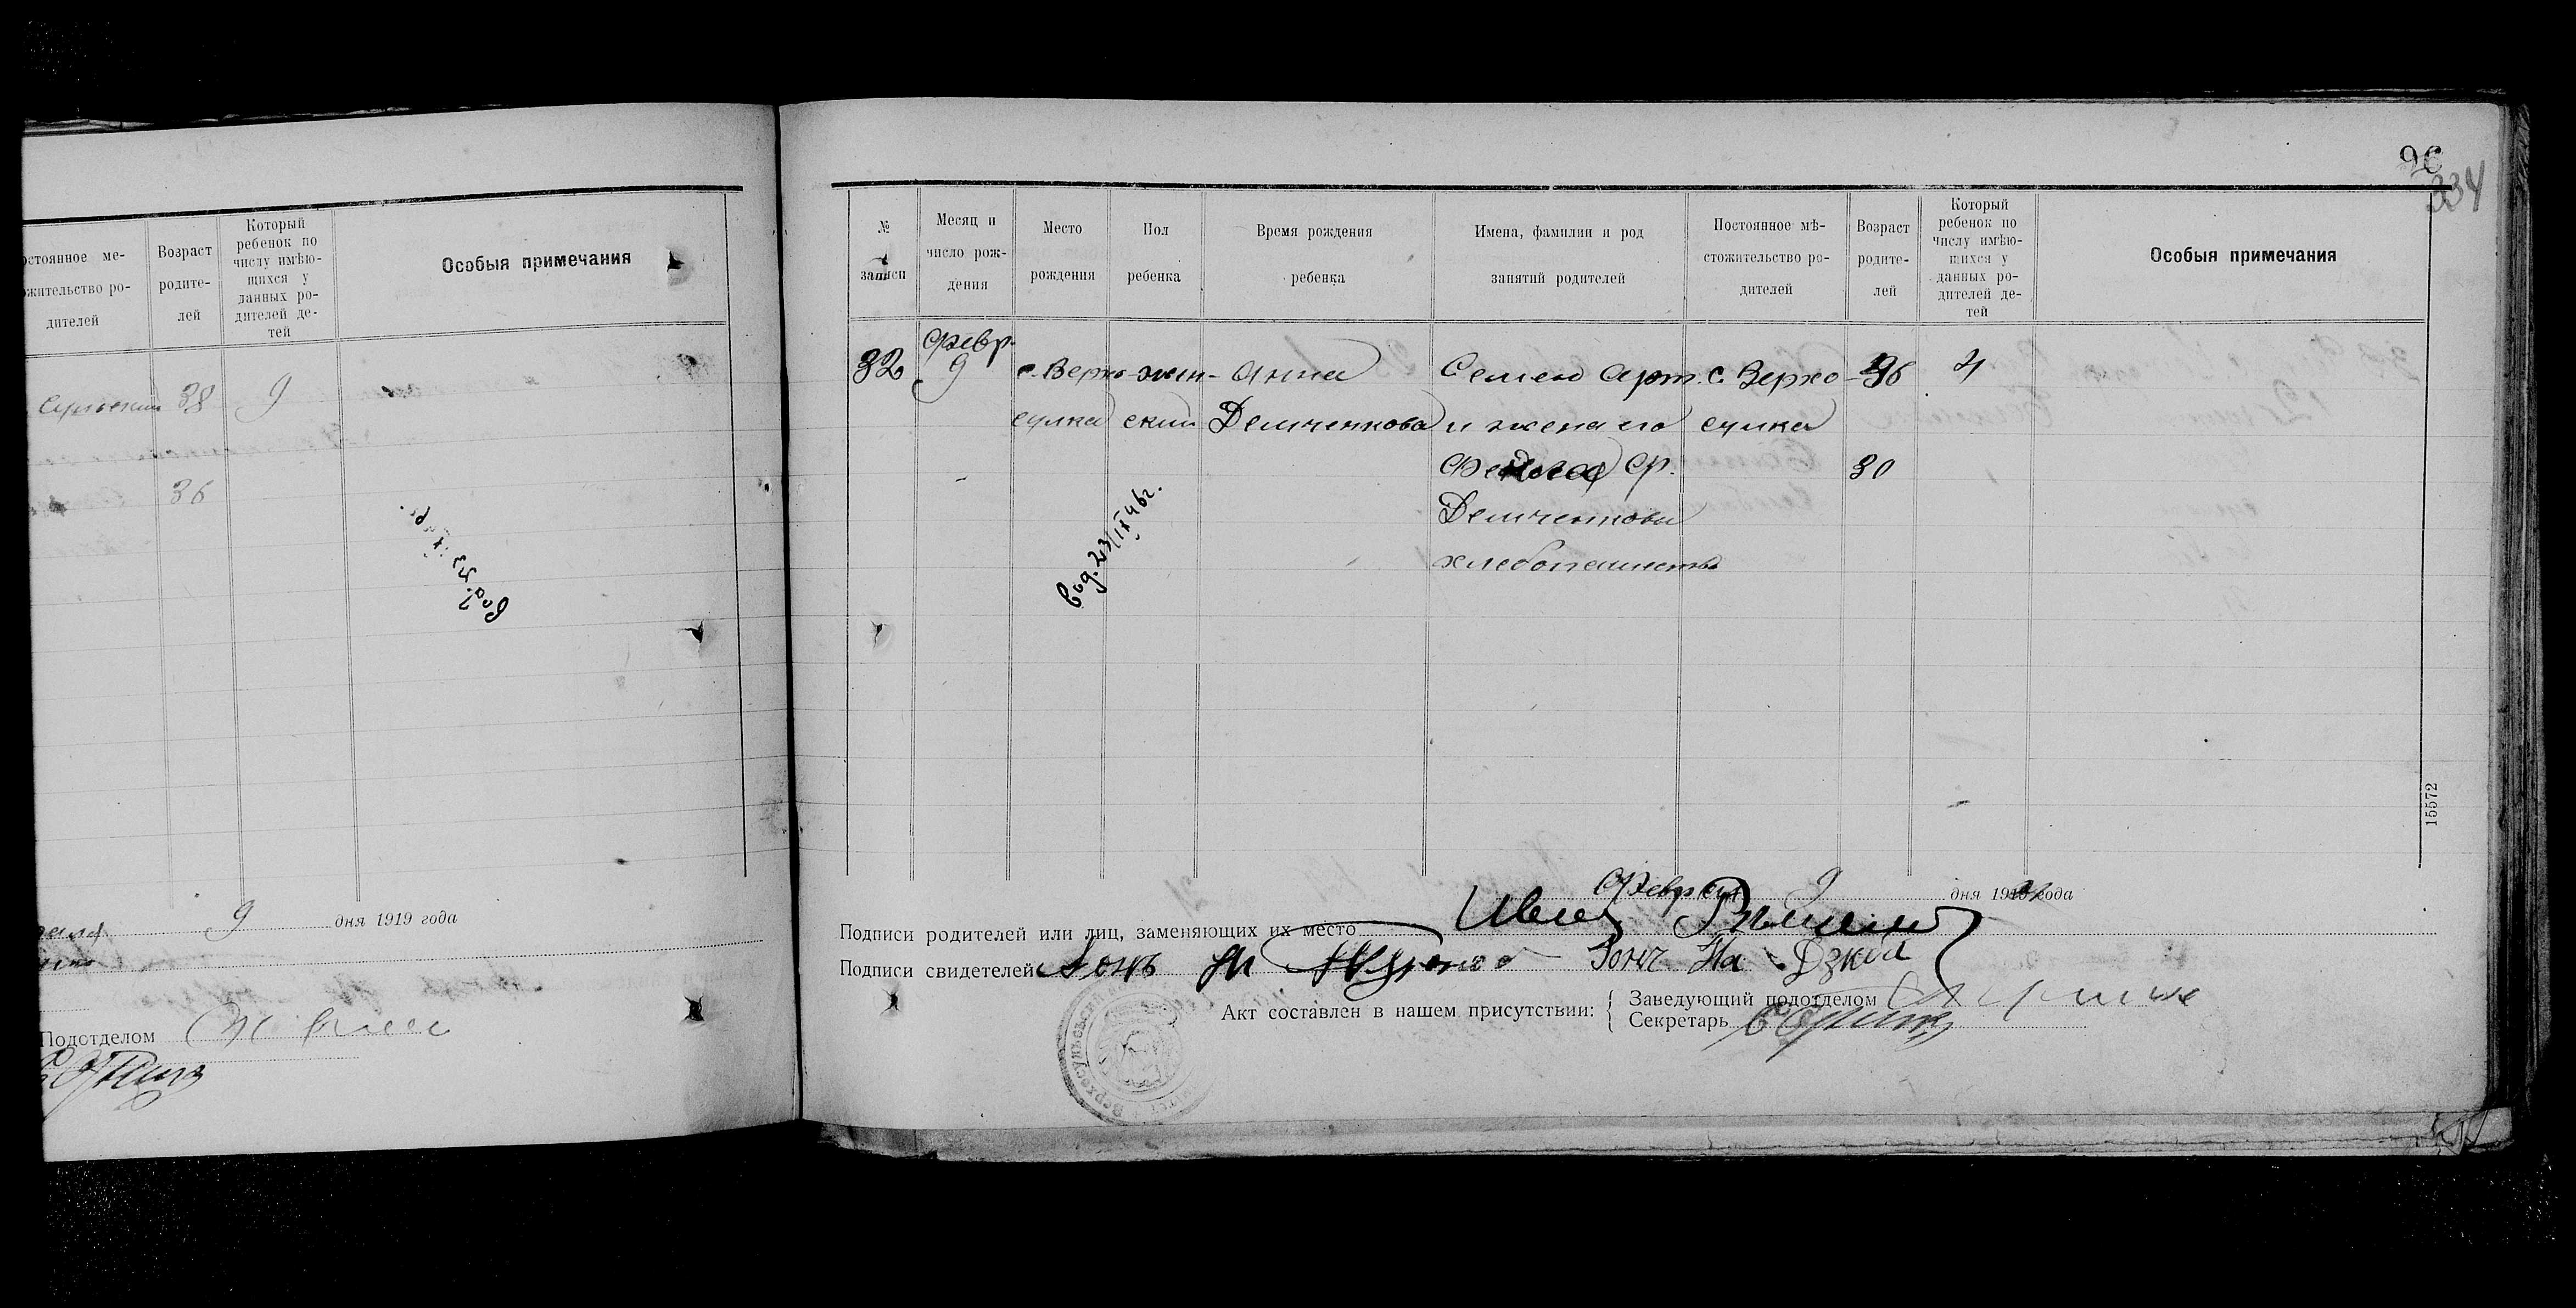 остоянное ме-
ожительство ро-
дителей
Возраст
родите-
лей
Который
ребенок по
числу имѣю-
щихся у
данных ро-
дителей де-
тей
Особыя примечания
38
9
36
9 дня 1919 года
Подотделом
96
334
№
записи
Месяц и
число рож-
дения
Место
рождения
Пол
ребенка
Время рождения
ребенка
Имена, фамилии и род
занятий родителей
Постоянное мѣ-
стожительство ро-
дителей
Возраст
родите-
лей
Который
ребенок по
числу имѣю-
щихся у
данных ро-
дителей де-
тей
Особыя примечания
32
Февр.
9
с. Верхо-
сулка
жен-
ский
Анна
Демченкова
Семен Арт.
и жена его
Гр.
Демченкови
хлебопашество
с. Верхо-
сулка
36
30
4
выд. 23/IX 46г.
15572
Февраля 9 дня 19 года
Подписи родителей или лиц, заменяющих их место
Подписи свидетелей
Акт составлен в нашем присутствии:
Заведующий подотделом
Секретарь